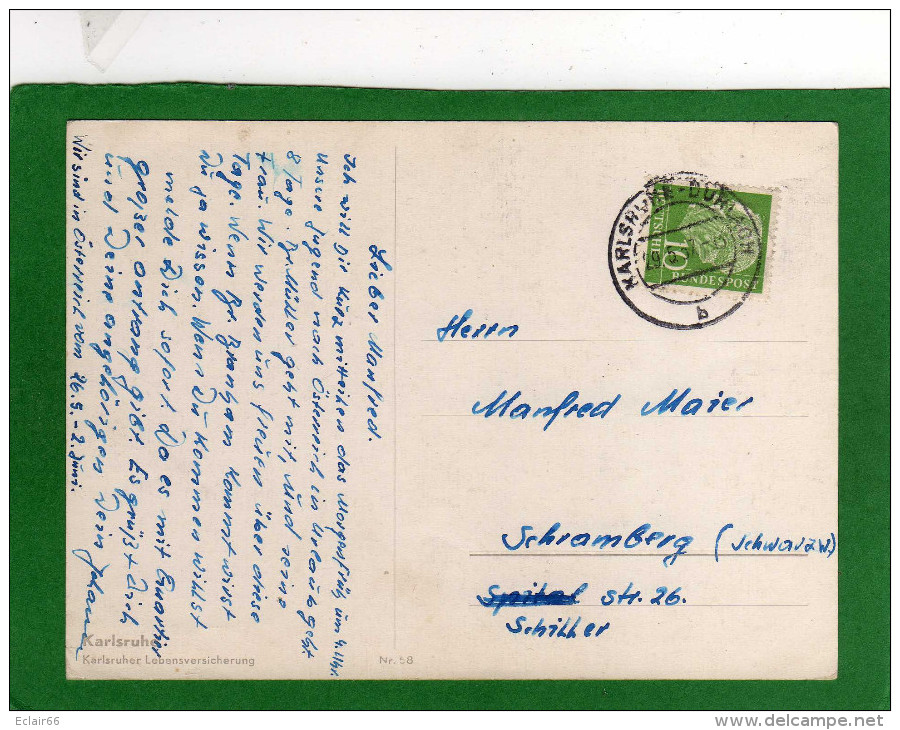 Lieber Manfred.
Ich will Dir kurz mitteilen das Morgenfrüh um 4 Uhr
unsere Jugend nach Österreich in Urlaub geht
8 Tage. Br. Müller geht mit, und seine
Frau. Wir werden uns freuen über diese
Tage. Wenn Br. kommt wirst
Du ja wissen, Wenn Du kommen willst
melde Dich sofort. Da es mit Quartier
großer gibt. Es grüßt Dich
und Deine angehörigen Dein Johann
Wir sind in Österreich vom 26.5. - 2. Juni.
Karlsruhe
Karlsruher Lebensversicherung
Nr. 58
KARLSRUHE-DURLACH
b
10
DEUTSCHE
BUNDESPOST
Herrn
Manfred Maier
Schramberg (Schwarzw.)
Spital str. 26.
Schiller
Eclair66
www.delcampe.net